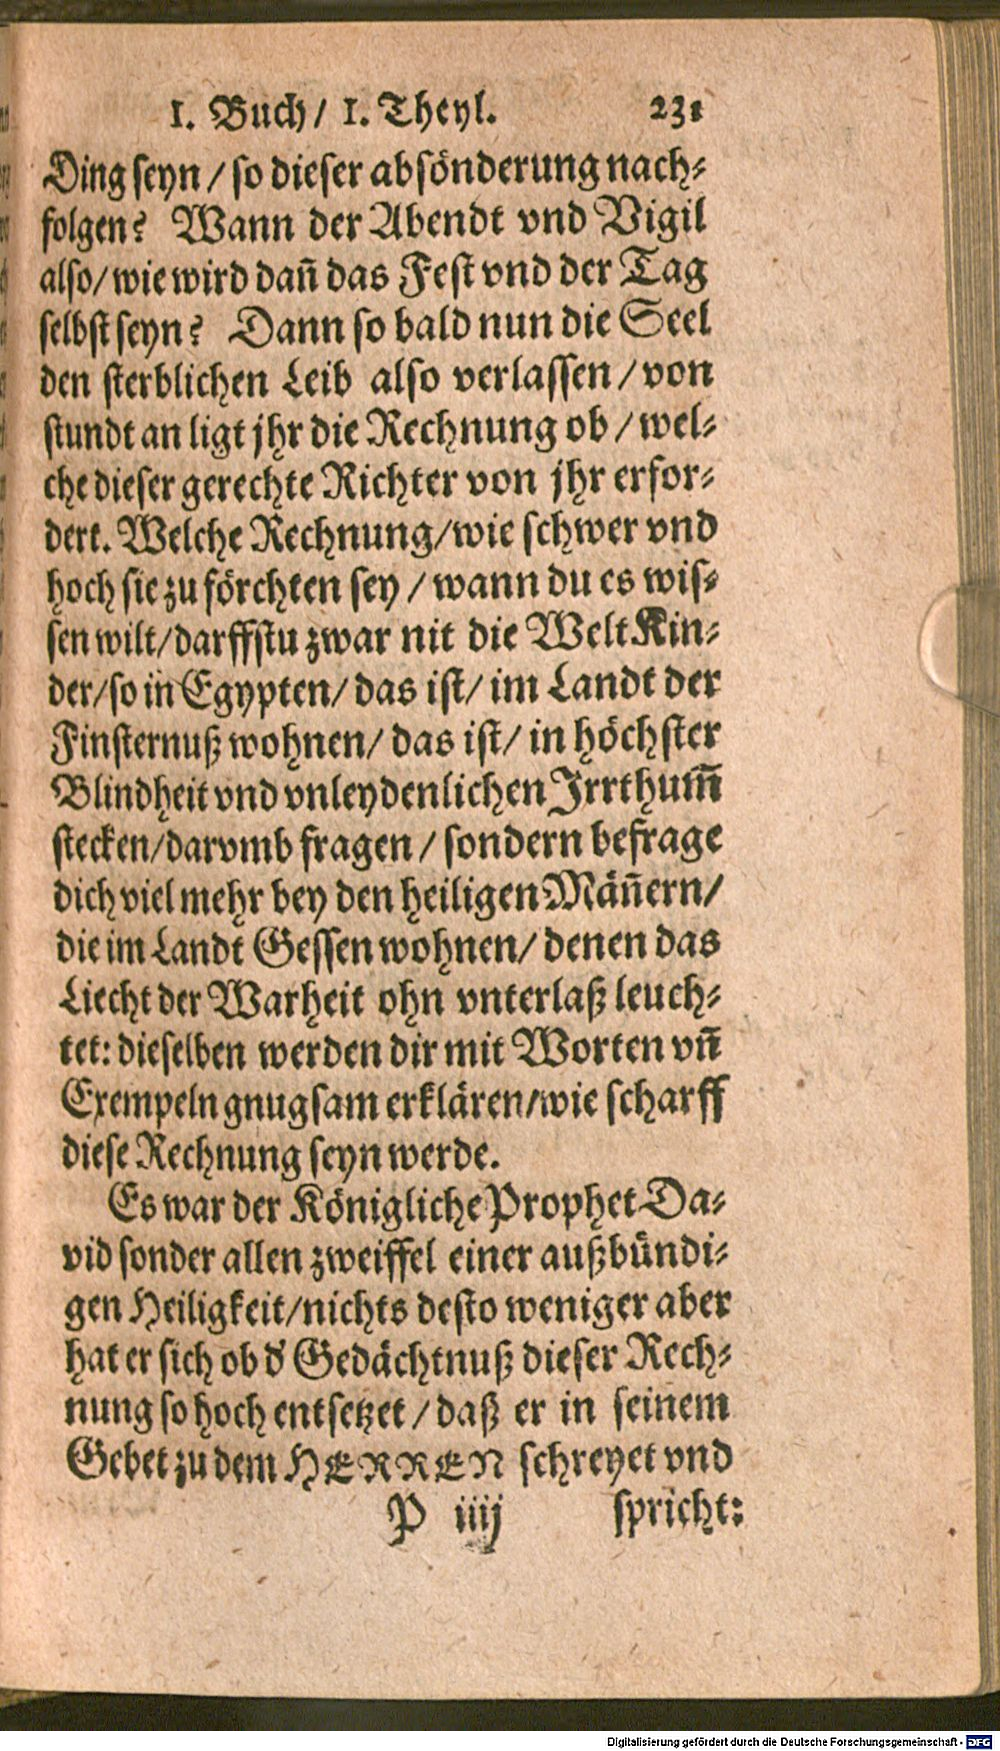 I. Buch/ I. Theyl. 231
Ding seyn / so dieser absönderung nach-
folgen? Wann der Abendt vnd Vigil
also/ wie wird dañ das Fest vnd der Tag
selbst seyn? Dann so bald nun die Seel
den sterblichen Leib also verlassen / von
stundt an ligt jhr die Rechnung ob / wel-
che dieser gerechte Richter von jhr erfor-
dert. Welche Rechnung/wie schwer vnd
hoch sie zu förchten sey / wann du es wis-
sen wilt/darffstu zwar nit die Welt Kin-
der/so in Egypten/ das ist/ im Landt der
Finsternuß wohnen/ das ist/ in höchster
Blindheit vnd vnleydenlichen Irrthum̃
stecken/darvmb fragen / sondern befrage
dich viel mehr bey den heiligen Mäñern/
die im Landt Gessen wohnen/ denen das
Liecht der Warheit ohn vnterlaß leuch-
tet: dieselben werden dir mit Worten vñ
Exempeln gnugsam erklären/wie scharff
diese Rechnung seyn werde.
Es war der Königliche Prophet Da-
vid sonder allen zweiffel einer außbündi-
gen Heiligkeit/nichts desto weniger aber
hat er sich ob d' Gedächtnuß dieser Rech-
nung so hoch entsetzet / daß er in seinem
Gebet zu dem HERREN schreyet vnd
P iiij spricht:
Digitalisierung gefördert durch die Deutsche Forschungsgemeinschaft - DFG